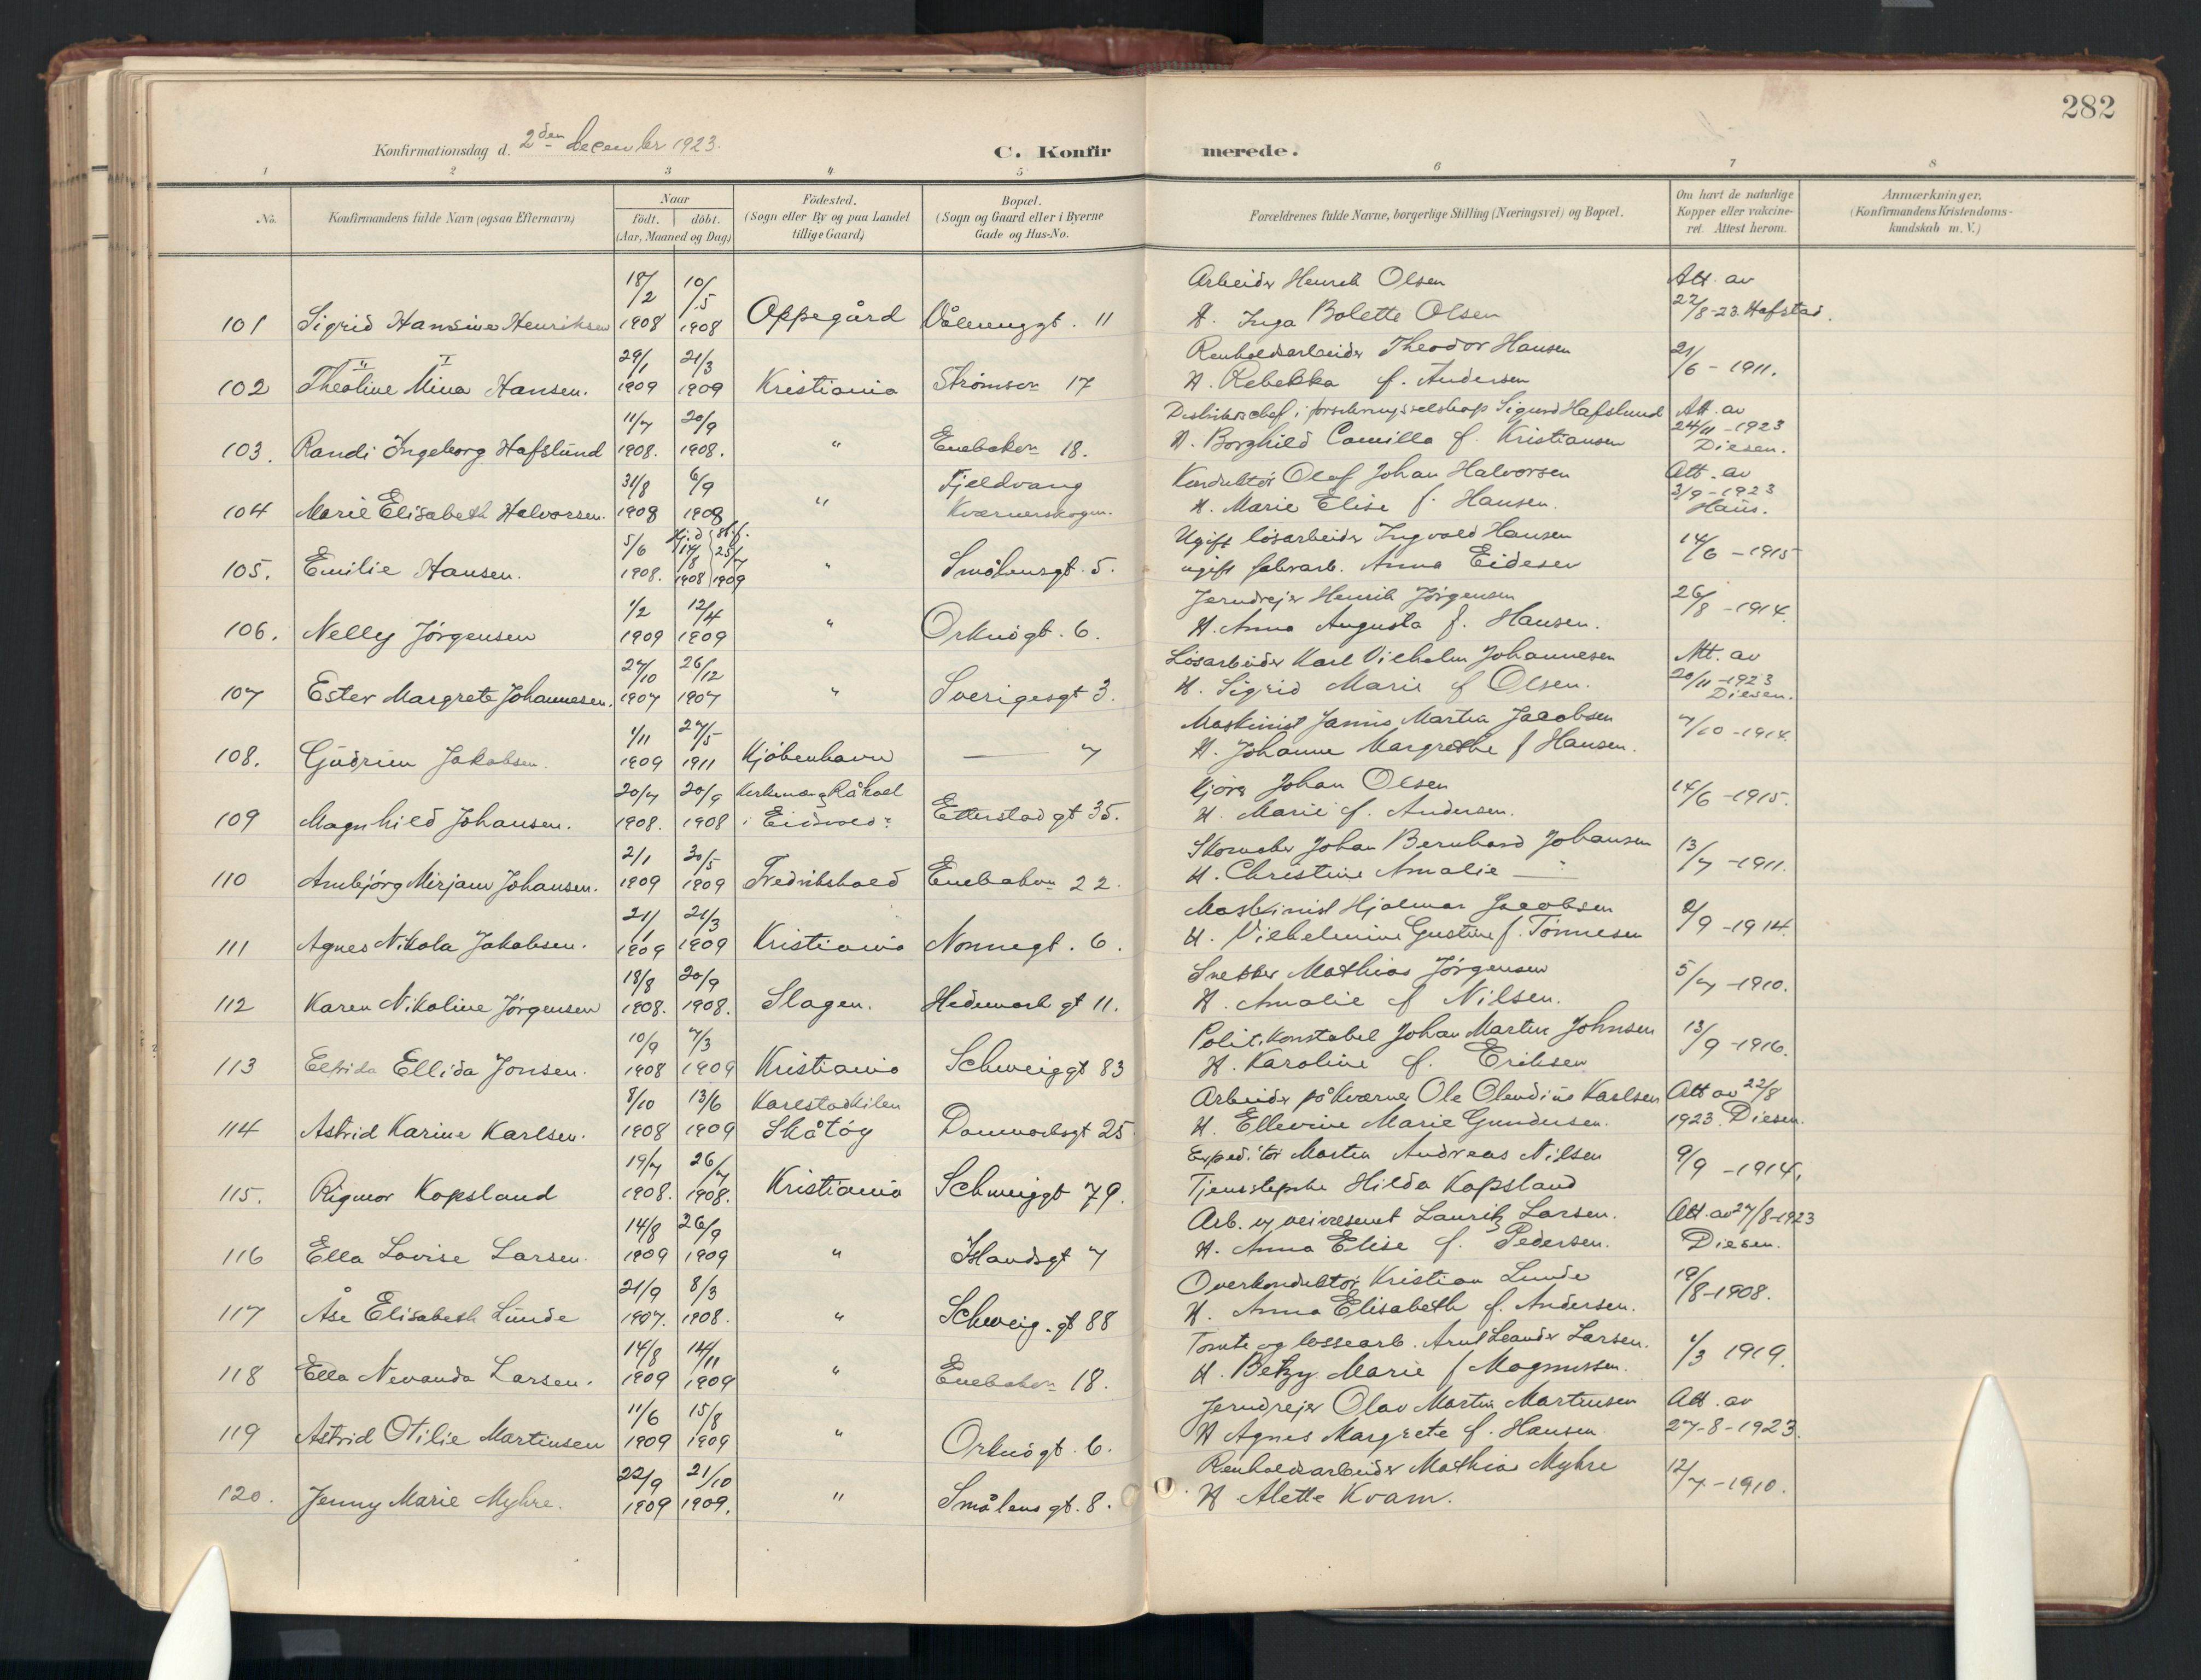 282
Konfirmationsdag d. 2den december 1923.
C. Konfirmerede.
1 2 3 4 5 6 7 8
No.
Konfirmandens fulde Navn (ogsaa Efternavn)
Naar
födt. döbt.
(Aar, Maaned og Dag)
Födested.
(Sogn eller By og paa Landet
tillige Gaard)
Bopæl.
(Sogn og Gaard eller i Byerne
Gade og Hus-No.
Forældrenes fulde Navne, borgerlige Stilling (Næringsvei) og Bopæl.
Om havt de naturlige
Kopper eller vakcine-
ret. Attest herom.
Anmærkninger,
(Konfirmandens Kristendoms-
kundskab m. V.)
101 Sigrid Hansine Henriksen 18/2 1908 10/5 1908 Oppegård Vålerenggt. 11 Arbeider Henrik Olsen Att. av
H. Inga Bolette Olsen 22/8-23. Hafstad.
102 Theoline Mina Hansen. 29/1 1909 21/3 1909 Kristiania Strømsvn 17 Renholdsarbeider Theodor Hansen 21/6 - 1911.
H. Rebekka f. Andersen
103. Randi Ingeborg Hafslund 11/7 1908. 20/9 1908. " Enebakvn 18. Distriktschef i forsikringsselskap Sigurd Hafslund Att. av
H. Borghild Camilla f. Kristiansen 24/11 - 1923
Diesen.
104 Marie Elisabeth Halvorsen. 31/8 1908 6/9 1908 " Fjeldvang
Kværnerskogen. Konduktör Olaf Johan Halvorsen Att. av
H. Marie Elise f. Hansen. 3/9 - 1923
Haus.
105. Emilie Hansen. 5/6 1908. Hj.d 14/8 1908 st.f. 25/7 1909 " Smålensgt. 5. Ugift løsarbeider Ingvald Hansen 14/6 - 1915
ugift fabrarb. Anna Eidesen
106. Nelly Jörgensen 1/2 1909 12/4 1909 " Orknögt. 6. Jerndreier Henrik Jörgensen 26/8 - 1914.
H. Anna Augusta f. Hansen.
107 Ester Margrete Johannesen. 27/10 1907 26/12 1907 " Sverigesgt 3. Løsarbeider Karl Vilhelm Johannesen Att. av
H. Sigrid Marie f Olsen. 20/11 - 1923
Diesen.
108. Gudrun Jakobsen. 1/11 1909 27/5 1911 Kjöbenhavn — 7 Maskinist Janus Martin Jacobsen 7/10 - 1914.
H. Johanne Margrethe f Hansen.
109 Magnhild Johansen. 20/7 1908. 20/9 1908 Råholt
i Eidsvold Etterstadgt 35. Kjörer Johan Olsen 14/6 - 1915.
H. Marie f. Andersen.
110 Arnbjörg Mirjam Johansen. 2/1 1909 30/5 1909 Fredrikshald Enebakvn 22. Skomaker Johan Bernhard Johansen 13/7 - 1911.
H. Christine Amalie — " —
111 Agnes Nikola Jakobsen. 21/1 1909 21/3 1909 Kristiania Nonnegt. 6. Maskinist Hjalmar Jacobsen 2/9 - 1914.
H. Vilhelmine Gustine f. Tönnesen
112 Karen Nikoline Jörgensen 18/8 1908. 20/9 1908. Slagen. Hedemark gt 11. Snekker Mathias Jörgensen 5/7 - 1910.
H. Amalie f Nilsen.
113 Elfrida Ellida Jonsen. 10/9 1908 7/3 1909 Kristiania Schweiggt 83 Politikonstabel Johan Martin Johnsen 13/9 - 1916.
H. Karoline f. Eriksen
114 Astrid Karine Karlsen. 8/10 1908 13/6 1909 Karlstadkilen
Skåtöy Danmarksgt 25 Arbeider på Kværner Ole Olendius Karlsen Att av 22/8
H. Ellevine Marie Gundersen. 1923. Diesen.
115. Rigmor Kopsland 19/7 1908. 26/7 1908. Kristiania Schweiggt 79. Expeditör Martin Andreas Nilsen 9/9 - 1914.
Tjenestepike Hilda Kopsland
116 Ella Lovise Larsen. 14/8 1909 26/9 1909 " Islandsgt 7 Arb. v veivesenet Lauritz Larsen. Att. av 27/8-1923
H. Anna Elise f. Pedersen. Diesen.
117 Åse Elisabeth Lunde 21/9 1907. 8/3 1908. " Schweig.gt 88 Overkonduktör Kristian Lunde 19/8-1908.
H. Anna Elisabeth f. Andersen.
118 Ella Nevanda Larsen. 14/8 1909 14/11 1909 " Enebakvn 18. Tomte og lossearb. Arnt Leander Larsen. 1/3 1919.
H. Betzy Marie f Magnussen.
119 Astrid Otilie Martinsen 11/6 1909 15/8 1909 " Orknögt. 6. Jerndreier Olav Martin Martinsen Att. av
H Agnes Margrete f. Hansen 27-8-1923.
120. Jenny Marie Myhre. 22/9 1909 21/10 1909. " Smålens gt. 8. Renholdsarbeider Mathias Myhre 12/7 - 1910.
H Alette Kvam.